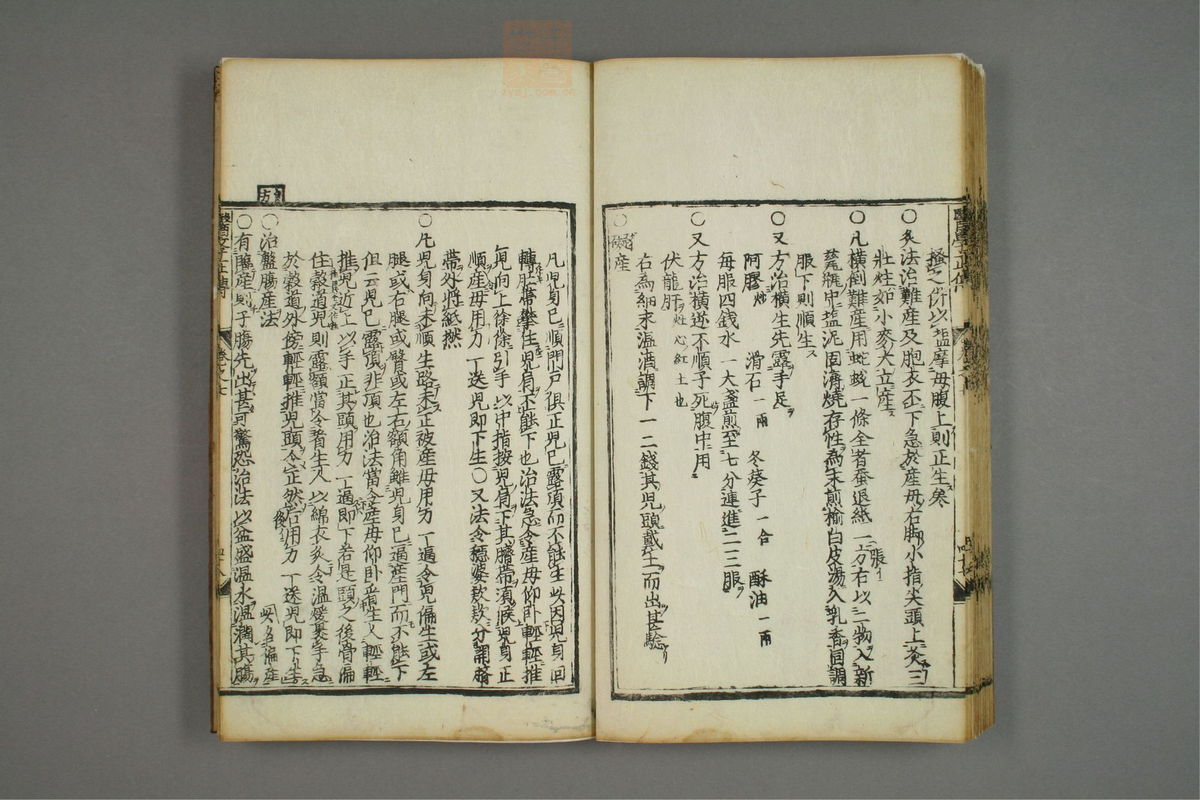 搔之仍以塩摩母腹上則正生
○灸法治難産及胞衣不下急於産母右脚小指尖頭上灸三
壯炷如小麥大立産
○凡橫倒難産用蛇蛻一條全者蚕退紙一方右以二物入新
甕中塩泥固濟燒存性為末煎榆白皮湯入乳香同調
服下則順生
○又方治橫生先露手足
阿膠炒 滑石一兩 冬葵子一合 酥油一兩
每服四錢水一大盞煎至七分連進二三服
○又方治橫逆不順子死腹中用
伏龍肝灶心紅土也
右為細末温酒調下一二錢其兒頭戴土而出甚驗
○碍産
凡兒身已順門戶俱正兒已露頂而不能生此因兒身回
轉肚帶攀住兒肩不能下也治法急令産母仰臥輕輕推
兒向上徐徐引手以中指按兒肩下其臍帶須候兒身正
順産母用力一送兒即下生○又法令穩婆款款分開臍
帶外將紙撚
○凡兒身向未順生路未正被産母用力一逼令兒偏生或左
腿或右腿或臂或左右額角離兒身已逼産門而不能下
但云兒已露頂非頂也治法當令産母仰臥看生人輕輕
推兒近上以手正其頭用力一逼即下若是頭之後骨偏
住穀道兒則露額當令看生人以綿衣灸令温煖裹手急
於穀道外傍輕輕推兒頭令正然後用力一送兒即下生
此名偏産
○治盤膓産法
○有臨産則子膓先出甚可驚恐治法以盆盛温水温潤其膓